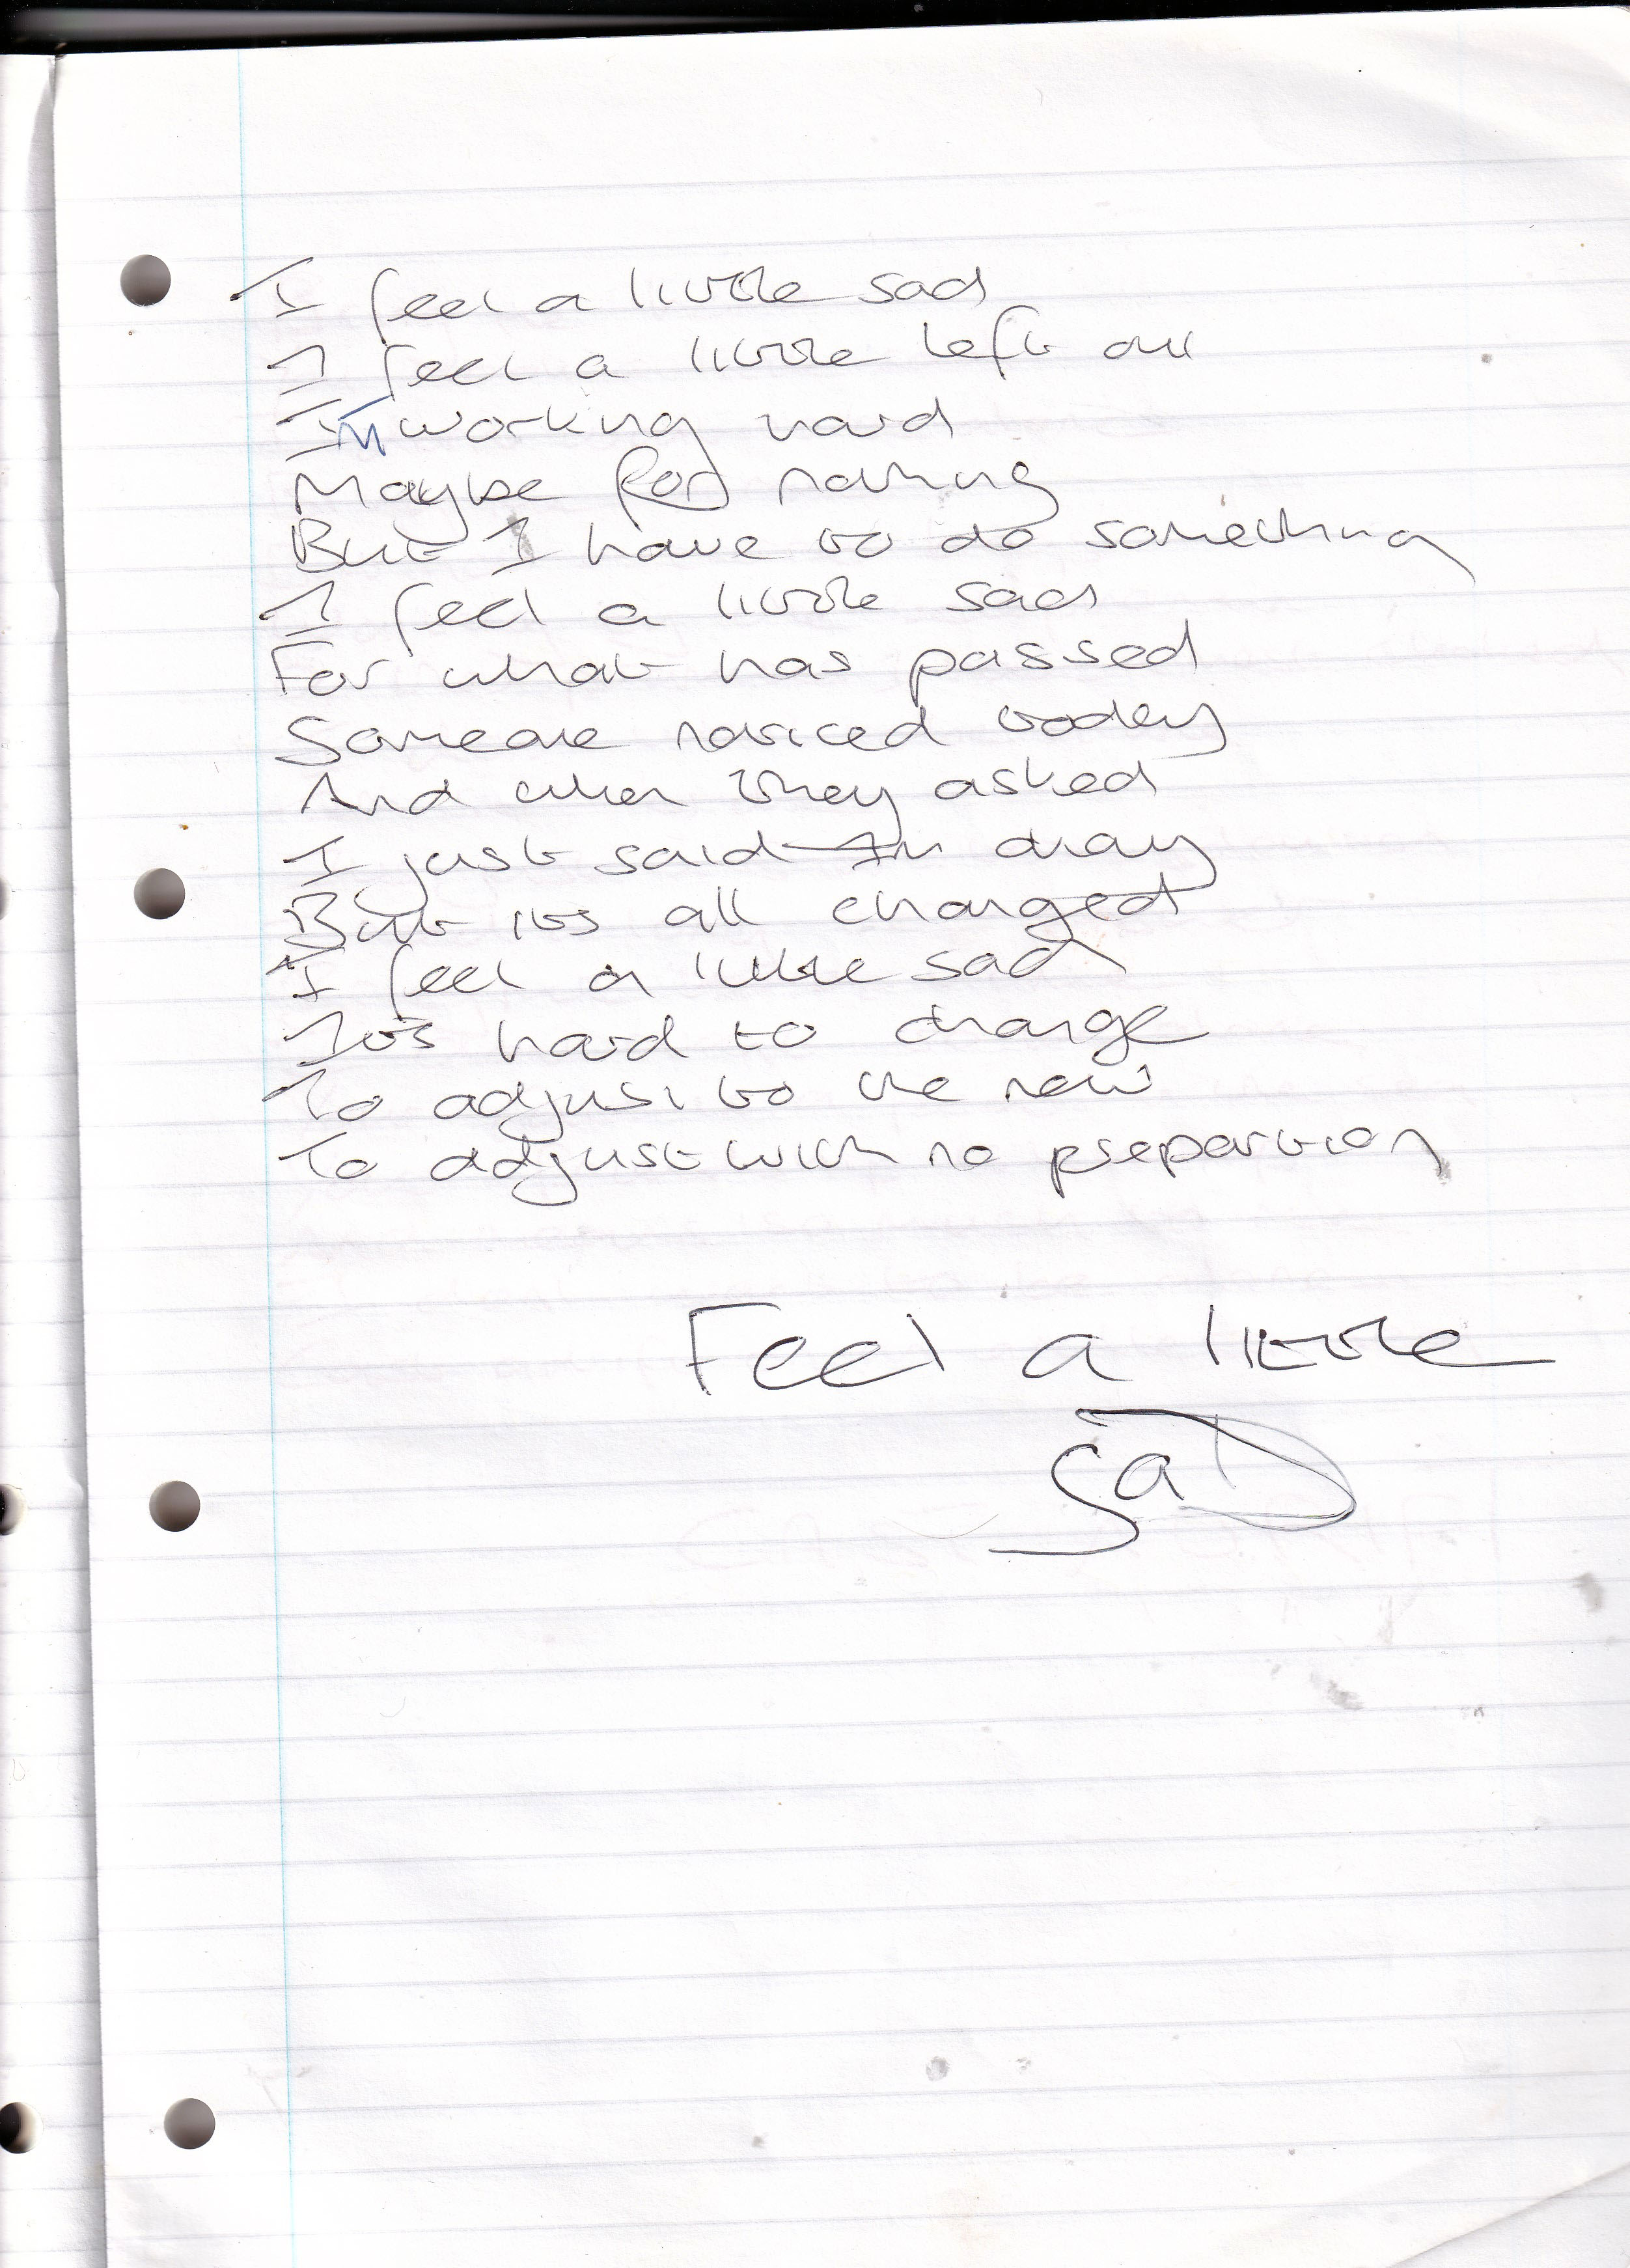 I feel a little sad
I feel a little left out
I'M working hard
Maybe for nothing
But I have to do something
I feel a little sad
For what has passed
Someone noticed today
And when they asked
I just said Im okay
But its all changed
I feel a little sad
Its hard to change
To adjust to the new
To adjust with no prepartion
Feel a little
saD